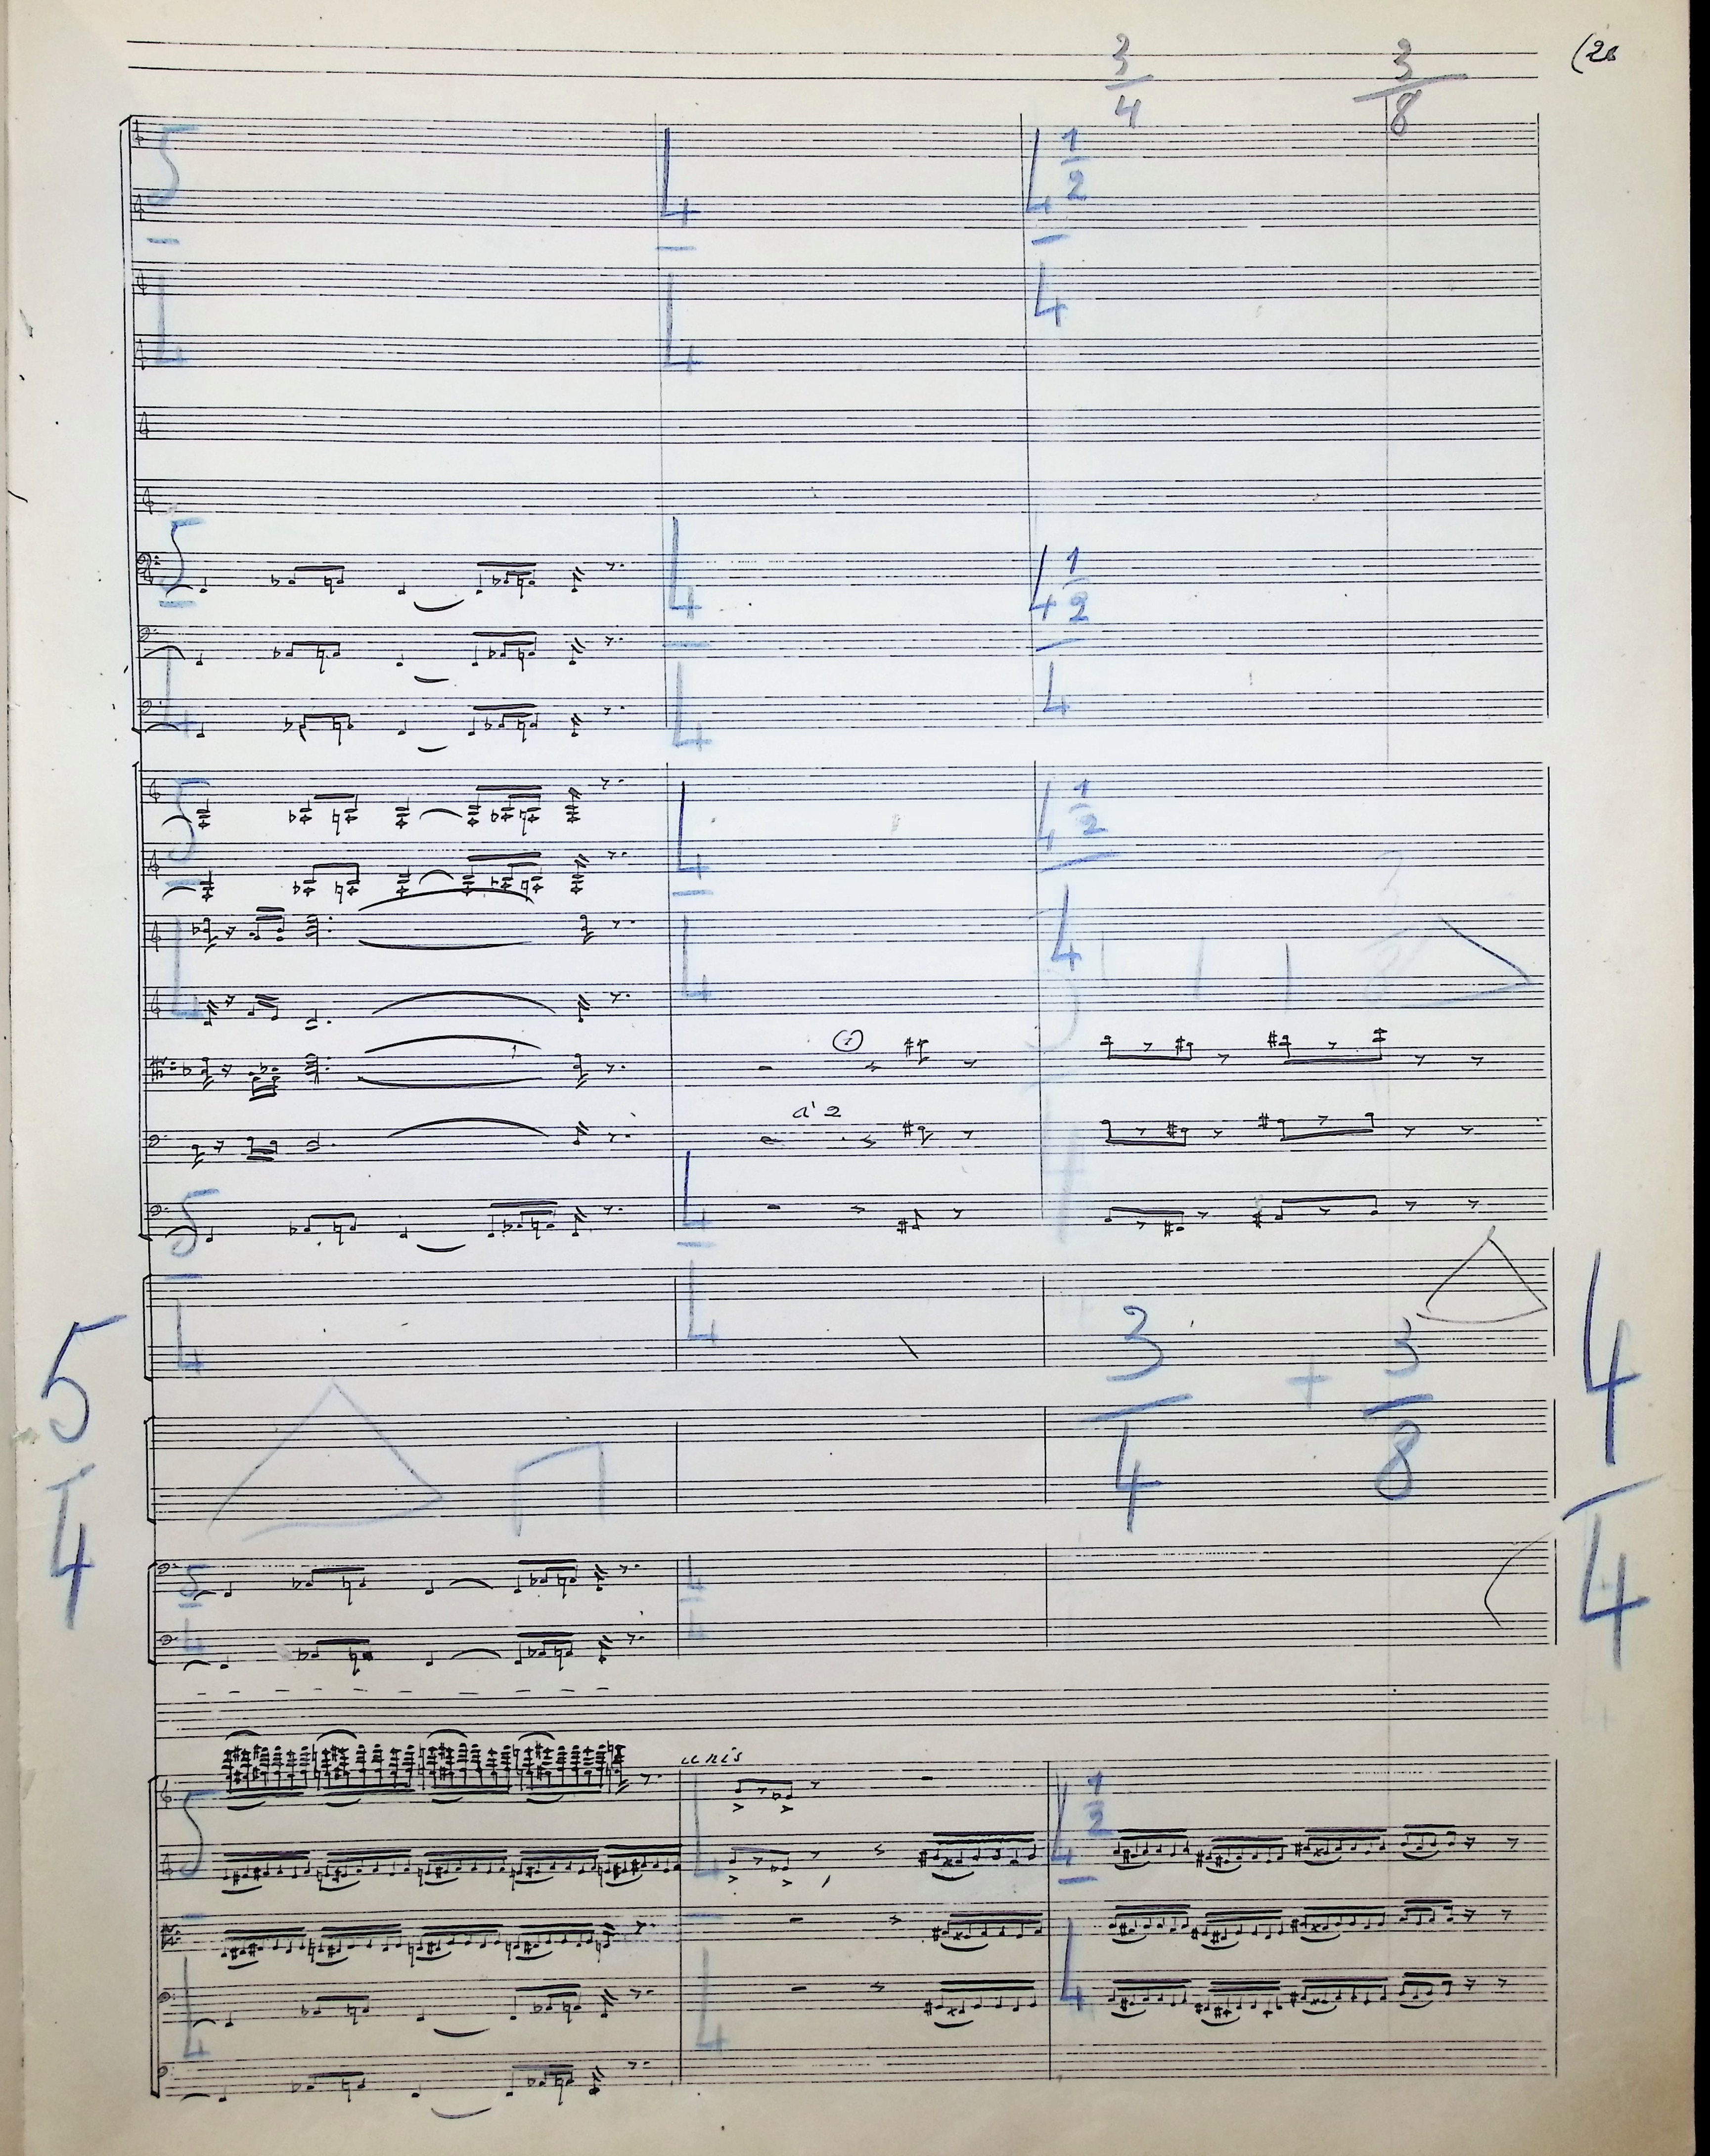 (28
3/4 3/8
5/4 4/4 4 1/2 /4
5/4 4/4 4 1/2 /4
5/4 4/4 4 1/2 /4
①
a' 2
5/4 4/4
3/4 + 3/8
5/4 4/4
5/4 4/4
unis
5/4 4/4 4 1/2 /4